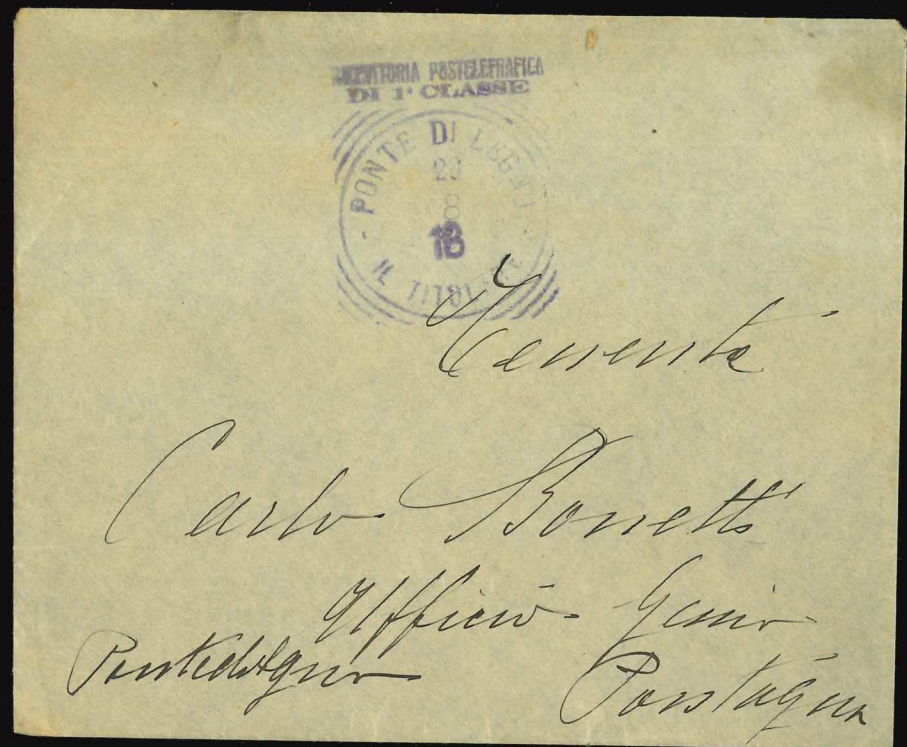 RICEVITORIA POSTELEGRAFICA
DI 1ª CLASSE
PONTE DI LEGNO
20
8
18
IL TITOLARE
Tenente
Carlo Bonetti
Ufficio Genio
Pontedilegno Pontagna